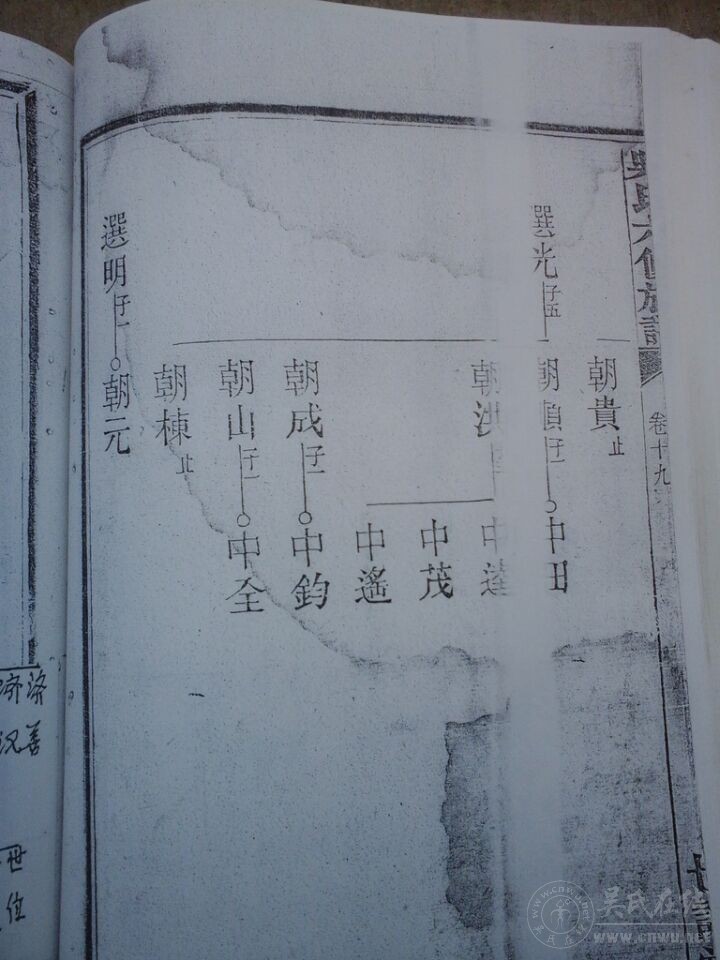 吳氏六修族譜
卷十九
選光 子五
朝貴 止
朝順 子一
中田
朝洪
中達
中茂
中遙
朝成 子一
中鈞
朝山 子一
中全
朝棟 止
選明 子一
朝元
济济
汉善
世
位
吴氏在线
www.cnwu.net